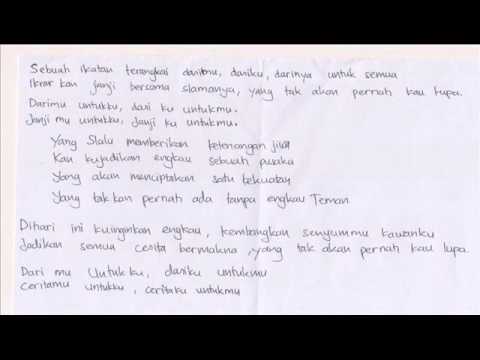 Sebuah ikatan terangkai darimu, dariku, darinya untuk semua
Ikrar kan janji bersama slamanya, yang tak akan pernah kau lupa.
Darimu untukku, dari ku untukmu.
Janji mu untukku, Janji ku untukmu.
Yang Slalu memberikan ketenangan jiwa
Kan kujadikan engkau sebuah pusaka
Yang akan menciptakan satu kekuatan
Yang takkan pernah ada tanpa engkau Teman
Dihari ini kuinginkan engkau, kembangkan senyummu kawanku
Jadikan semua cerita bermakna, yang tak akan pernah kau lupa.
Dari mu Untukku, dariku untukmu
Ceritamu untukku, ceritaku untukmu